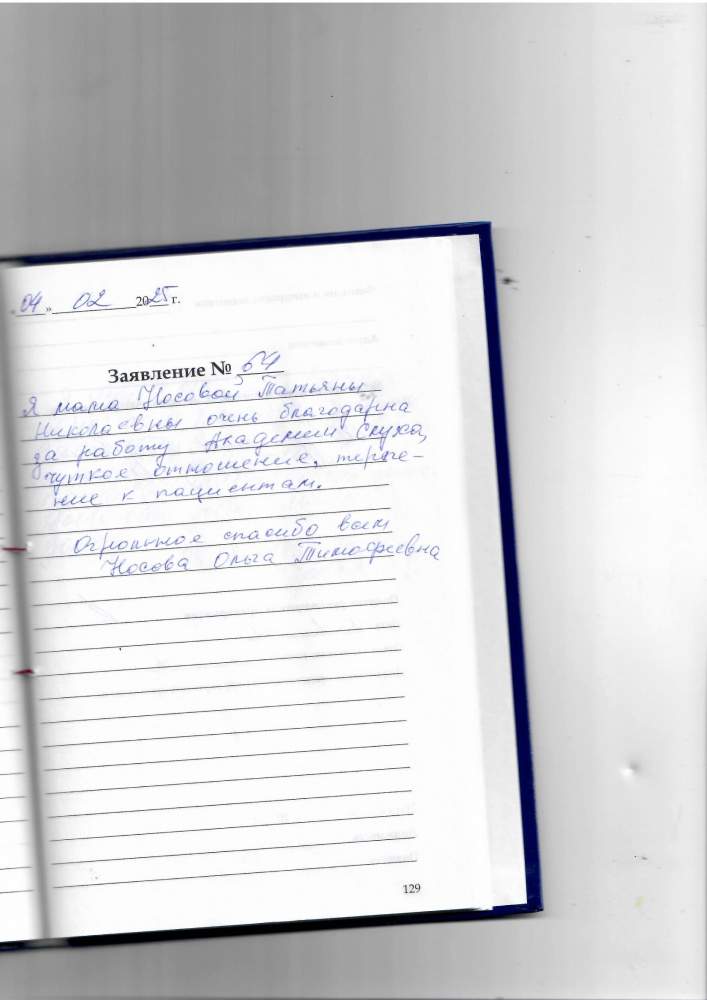 „04" 02 2025 г.
Заявление № 64
Я мама Носовой Татьяны
Николаевны очень благодарна
за работу Академии Слуха,
чуткое отношение, терпе-
ние к пациентам.
Огромное спасибо всем
Носова Ольга Тимофеевна
129